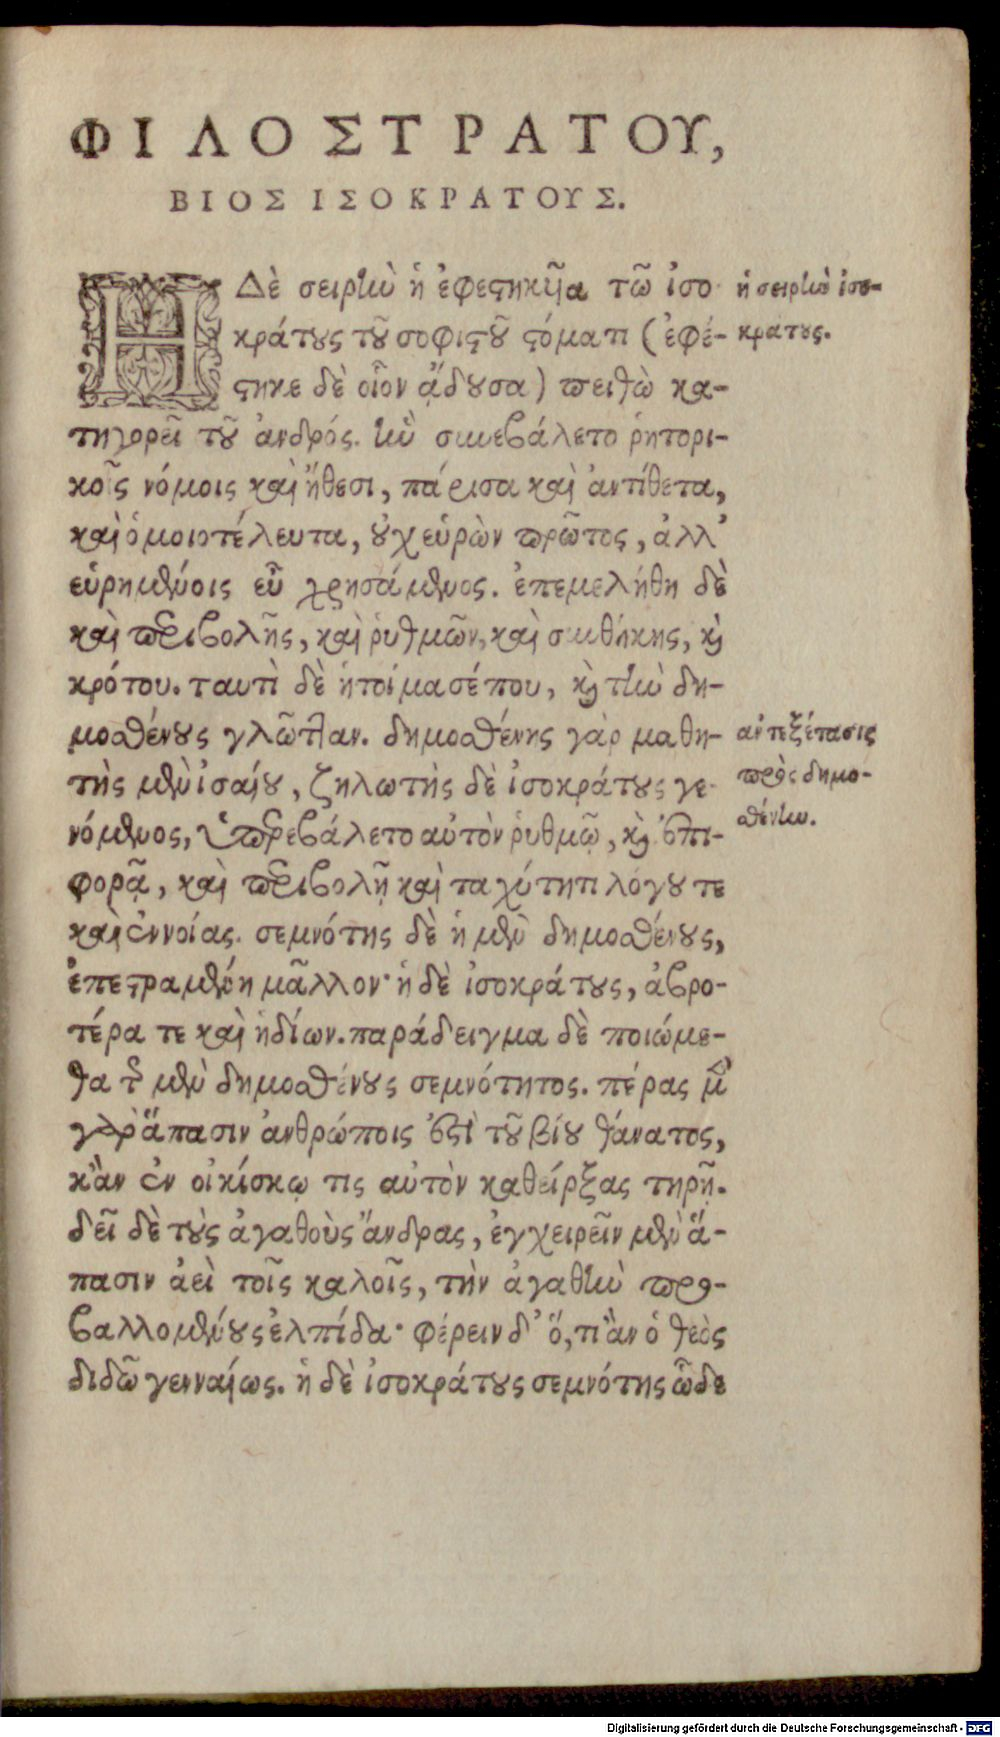 ΦΙΛΟΣΤΡΑΤΟΥ,
ΒΙΟΣ ΙΣΟΚΡΑΤΟΥΣ.
Η Δὲ σειρὴν ἡ ἐφεστηκῆα τῶ ἰσο
κράτους τοῦ σοφιστοῦ στόματι (ἐφέ-
στηκε δὲ οἷον ᾄδουσα) πειθὼ κα-
τηγορεῖ τοῦ ἀνδρός. ἣν συνεβάλετο ῥητορι-
κοῖς νόμοις καὶ ἤθεσι, πάρισα καὶ ἀντίθετα,
καὶ ὁμοιοτέλευτα, οὐχ εὑρὼν πρῶτος, ἀλλ᾽
εὑρημένοις εὖ χρησάμενος. ἐπεμελήθη δὲ
καὶ περιβολῆς, καὶ ῥυθμῶν, καὶ συνθήκης, καὶ
κρότου. ταυτὶ δὲ ἡτοίμασέ που, καὶ τὴν δη-
μοσθένους γλῶτταν. δημοσθένης γὰρ μαθη-
τὴς μὲν ἰσαίου, ζηλωτὴς δὲ ἰσοκράτους γε
νόμενος, ὑπερεβάλετο αὐτὸν ῥυθμῷ, καὶ ἐπι-
φορᾷ, καὶ περιβολῇ καὶ ταχύτητι λόγου τε
καὶ ἐννοίας. σεμνότης δὲ ἡ μὲν δημοσθένους,
ἐπεστραμμένη μᾶλλον· ἡ δὲ ἰσοκράτους, ἁβρο-
τέρα τε καὶ ἡδίων. παράδειγμα δὲ ποιώμε-
θα τῆς μὲν δημοσθένους σεμνότητος. πέρας μὲν
γὰρ ἅπασιν ἀνθρώποις ἐστὶ τοῦ βίου θάνατος,
κἂν ἐν οἰκίσκῳ τις αὐτὸν καθείρξας τηρῇ.
δεῖ δὲ τοὺς ἀγαθοὺς ἄνδρας, ἐγχειρεῖν μὲν ἅ-
πασιν ἀεὶ τοῖς καλοῖς, τὴν ἀγαθὴν προ-
βαλλομένους ἐλπίδα· φέρειν δ᾽ ὅ, τι ἂν ὁ θεὸς
διδῶ γενναίως. ἡ δὲ ἰσοκράτους σεμνότης ὧδε
ἡ σειρὴν ἰσο-
κράτους.
ἀντεξέτασις
πρὸς δημο-
σθένην.
Digitalisierung gefördert durch die Deutsche Forschungsgemeinschaft - DFG